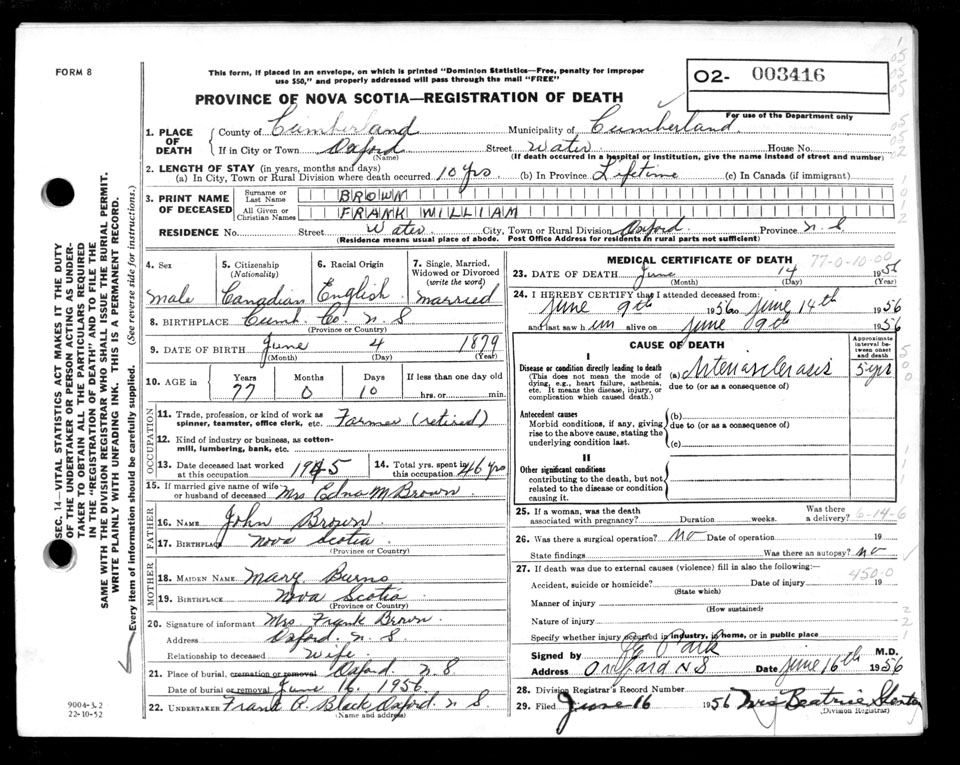 FORM 8
This form, if placed in an envelope, on which is printed "Dominion Statistics—Free, penalty for improper
use $50," and properly addressed will pass through the mail "FREE"
PROVINCE OF NOVA SCOTIA—REGISTRATION OF DEATH
02- 003416
For use of the Department only
1. PLACE OF DEATH County of Cumberland Municipality of Cumberland
If in City or Town Oxford Street Water House No.
(Name) (If death occurred in a hospital or institution, give the name instead of street and number)
2. LENGTH OF STAY (in years, months and days)
(a) In City, Town or Rural Division where death occurred 10 yrs (b) In Province Lifetime (c) In Canada (if immigrant)
3. PRINT NAME OF DECEASED Surname or Last Name BROWN
All Given or Christian Names FRANK WILLIAM
RESIDENCE No. Street Water City, Town or Rural Division Oxford Province N.S
(Residence means usual place of abode. Post Office Address for residents in rural parts not sufficient)
4. Sex male
5. Citizenship (Nationality) Canadian
6. Racial Origin English
7. Single, Married, Widowed or Divorced (write the word) married
8. BIRTHPLACE Cumb. Co. N S
(Province or Country)
9. DATE OF BIRTH June 4 1879
(Month) (Day) (Year)
10. AGE in Years Months Days If less than one day old
77 0 10 hrs. or min.
OCCUPATION
11. Trade, profession, or kind of work as spinner, teamster, office clerk, etc. Farmer (retired)
12. Kind of industry or business, as cotton-mill, lumbering, bank, etc.
13. Date deceased last worked at this occupation 1945
14. Total yrs. spent in this occupation 46 yrs
15. If married give name of wife or husband of deceased Mrs Edna M Brown
FATHER
16. Name John Brown
17. Birthplace Nova Scotia
(Province or Country)
MOTHER
18. Maiden Name Mary Burns
19. Birthplace Nova Scotia
(Province or Country)
20. Signature of informant Mrs Frank Brown
Address Oxford. N S
Relationship to deceased Wife
21. Place of burial, cremation or removal Oxford N S
Date of burial or removal June 16, 1956.
22. Undertaker Frank P. Black Oxford. N S
(Name and address)
MEDICAL CERTIFICATE OF DEATH 77-0-10-00
23. DATE OF DEATH June 14 1956
(Month) (Day) (Year)
24. I HEREBY CERTIFY that I attended deceased from:
June 9th 1956 to June 14th 1956
and last saw him alive on June 9th 1956
CAUSE OF DEATH
Approximate interval between onset and death
I
Disease or condition directly leading to death
(This does not mean the mode of dying, e.g., heart failure, asthenia, etc. It means the disease, injury, or complication which caused death.)
(a) Arteriosclerosis 5 yr
due to (or as a consequence of)
Antecedent causes
Morbid conditions, if any, giving rise to the above cause, stating the underlying condition last.
(b)
due to (or as a consequence of)
(c)
II
Other significant conditions
contributing to the death, but not related to the disease or condition causing it.
25. If a woman, was the death associated with pregnancy? Duration weeks. Was there a delivery? 6-14-6
26. Was there a surgical operation? No Date of operation 19
State findings Was there an autopsy? No
27. If death was due to external causes (violence) fill in also the following:—
450-0
Accident, suicide or homicide? Date of injury 19
(State which)
Manner of injury
(How sustained)
Nature of injury
Specify whether injury occurred in industry, in home, or in public place
Signed by Park M.D.
Address Oxford N S Date June 16th 1956
28. Division Registrar's Record Number
29. Filed June 16 1956 Mrs Beatrice
(Division Registrar)
SEC. 14—VITAL STATISTICS ACT MAKES IT THE DUTY
OF THE UNDERTAKER OR PERSON ACTING AS UNDER-
TAKER TO OBTAIN ALL THE PARTICULARS REQUIRED
IN THE "REGISTRATION OF DEATH" AND TO FILE THE
SAME WITH THE DIVISION REGISTRAR WHO SHALL ISSUE THE BURIAL PERMIT.
WRITE PLAINLY WITH UNFADING INK. THIS IS A PERMANENT RECORD.
Every item of information should be carefully supplied. (See reverse side for instructions.)
9004-3.2
22-10-52